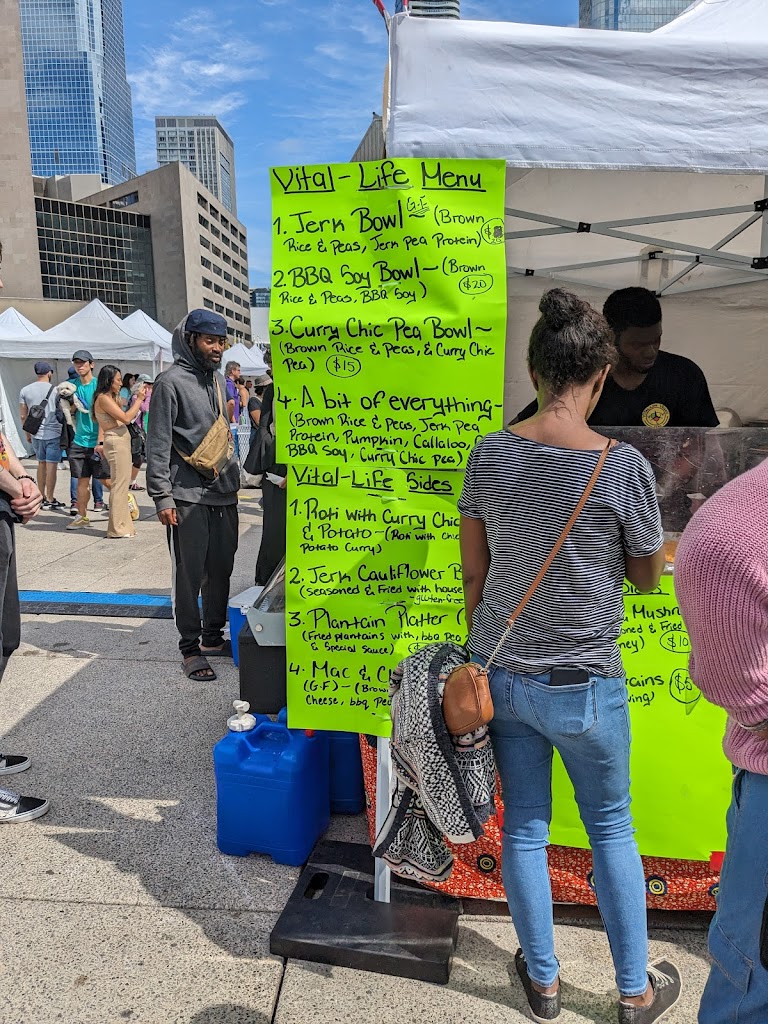 Vital-Life Menu
1. Jerk Bowl G-F (Brown
Rice & Peas, Jerk Pea Protein)
2. BBQ Soy Bowl~ (Brown
Rice & Peas, BBQ Soy) $20
3. Curry Chic Pea Bowl~
(Brown Rice & Peas, & Curry Chic
Pea) $15
4. A bit of everything~
(Brown Rice & Peas, Jerk Pea
Protein, Pumpkin, Callaloo,
BBQ Soy, Curry Chic Pea)
Vital-Life Sides
1. Roti with Curry Chic
& Potato~ (Roti with Chic
Potato Curry)
2. Jerk Cauliflower B
(seasoned & Fried with house
-gluten-free
3. Plantain Platter (
(Fried plantains with, bbq Pea
& Special Sauce)
4. Mac & C
(G.F)~ (Brow
Cheese, bbq Pea
Mushr
oned & Fried
ney) $10
rains $5
ving)